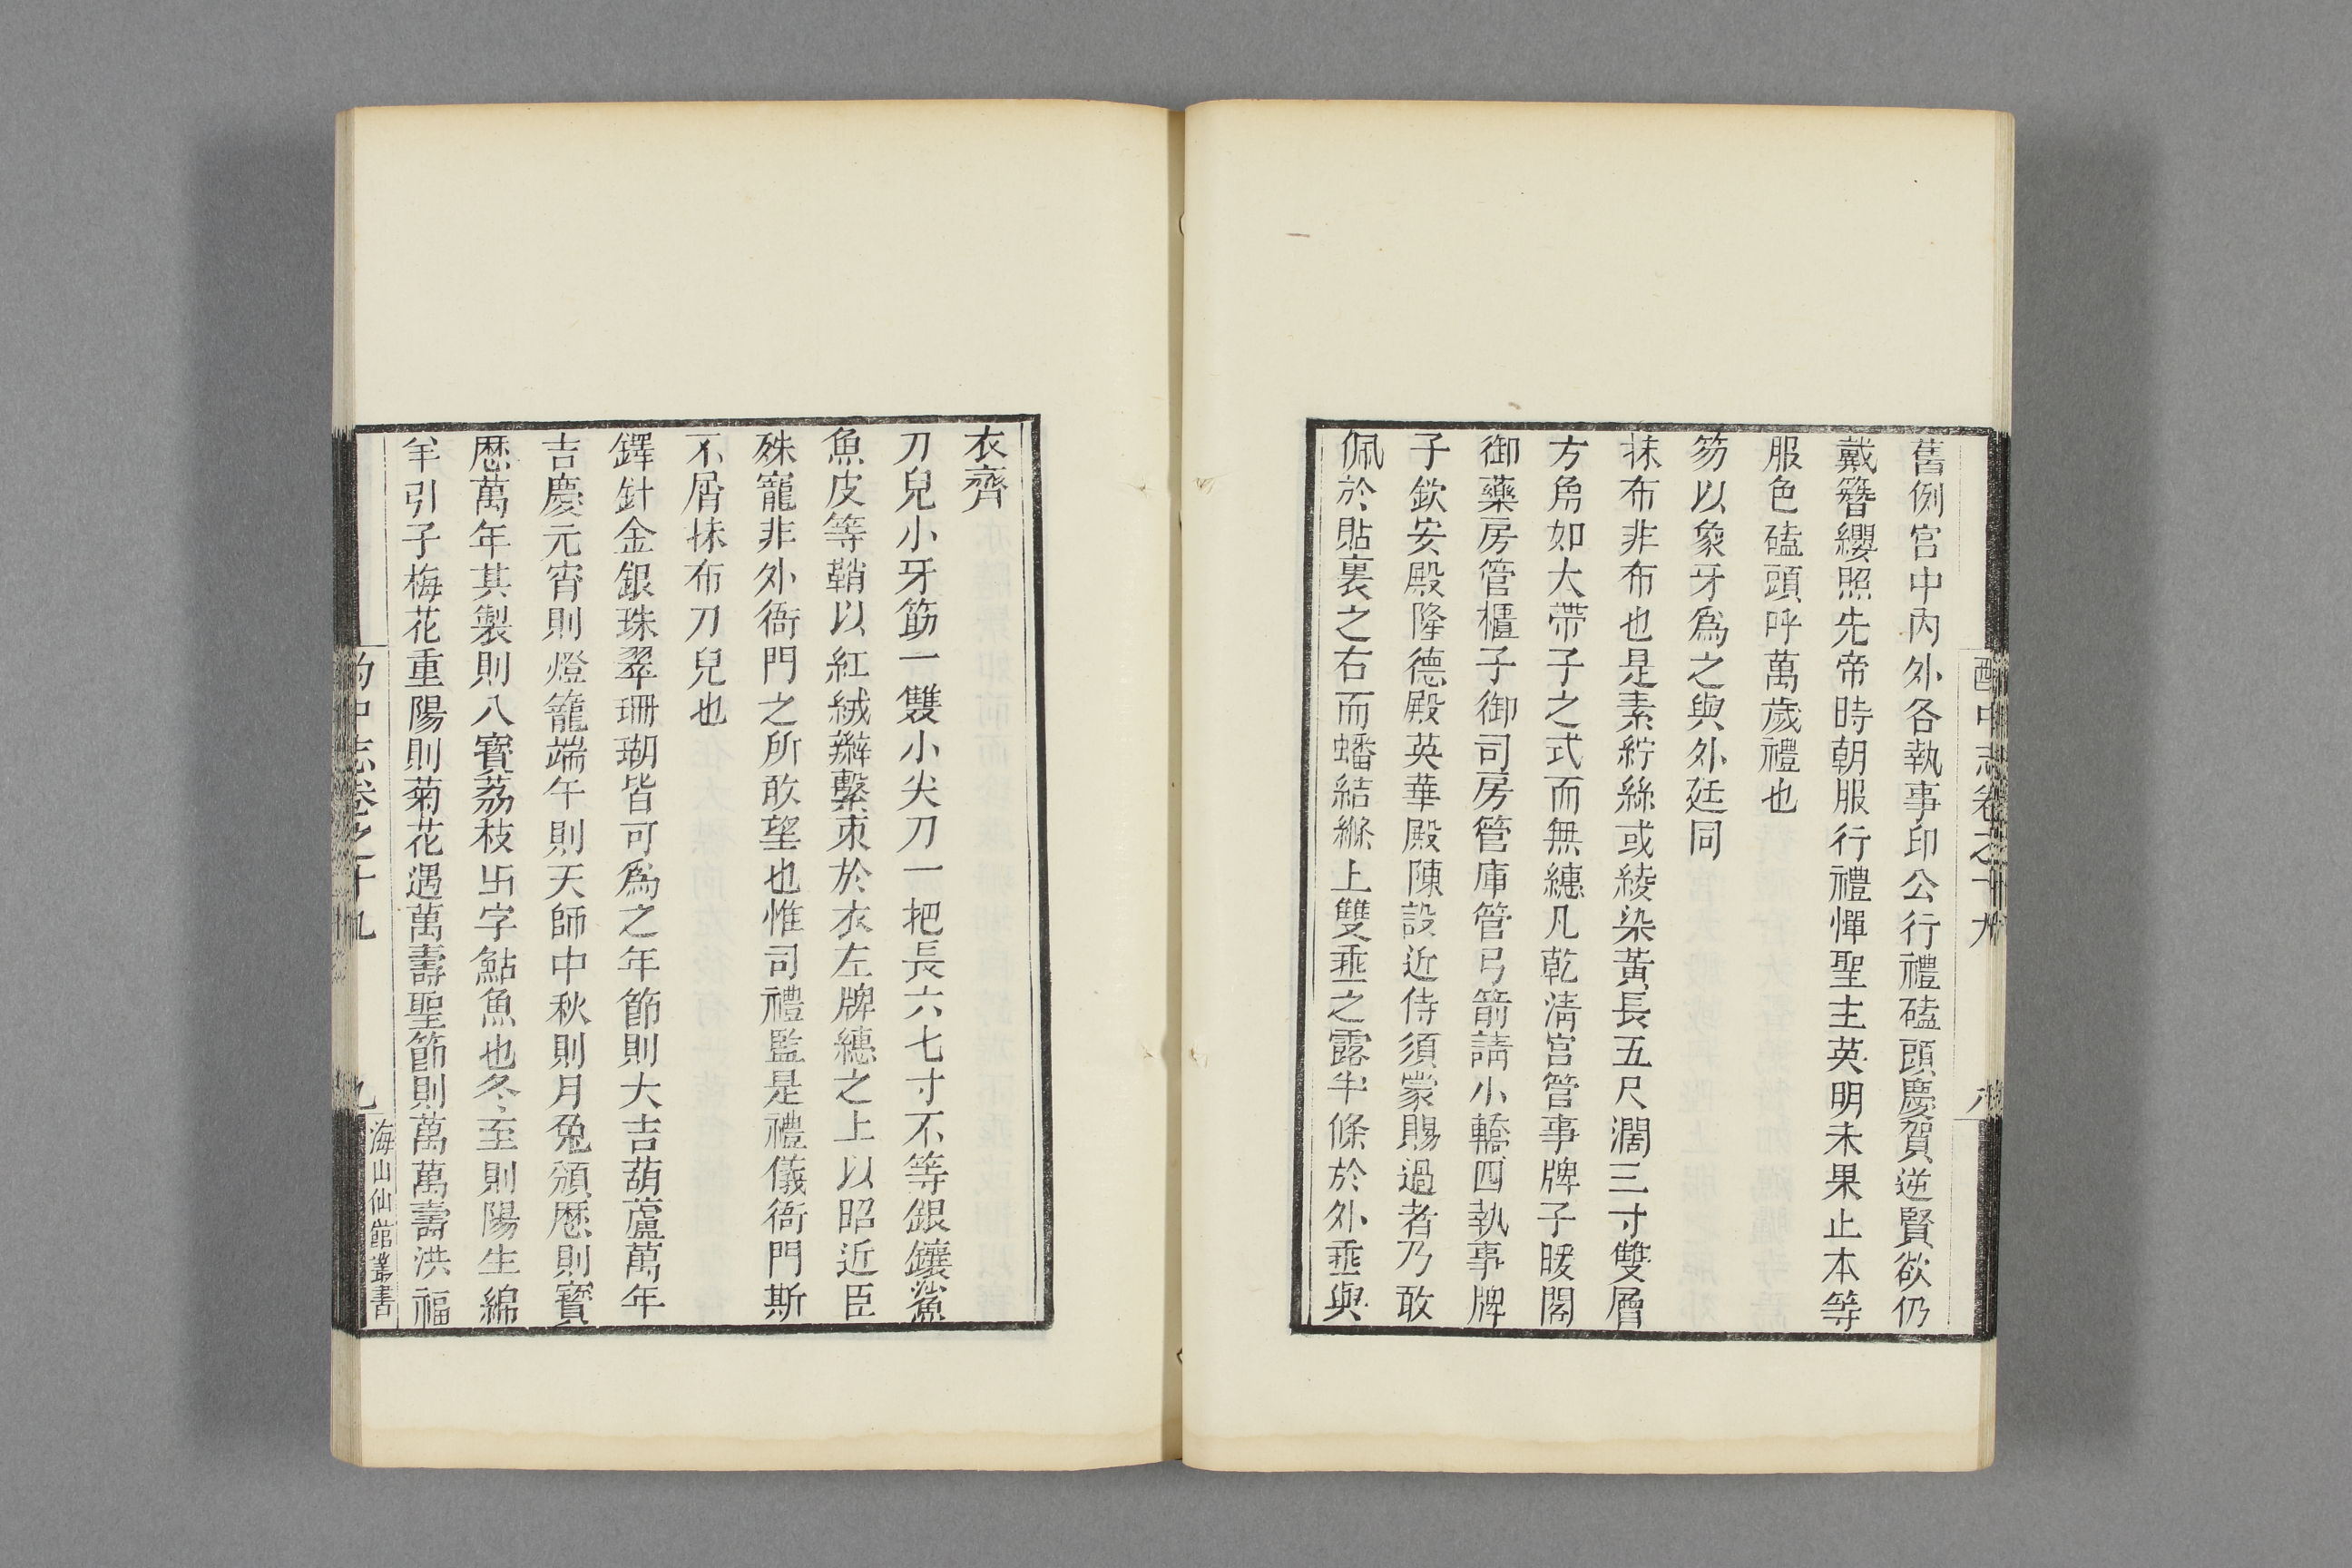 酌中志卷之十九
舊例宫中內外各執事印公行禮磕頭慶賀逆賢欲仍
戴簪纓照先帝時朝服行禮憚聖主英明未果止本等
服色磕頭呼萬歲禮也
笏以象牙爲之與外廷同
抹布非布也是素紵絲或綾染黃長五尺濶三寸雙層
方角如大帶子之式而無繐凡乾淸宫管事牌子暖閣
御藥房管櫃子御司房管庫管弓箭請小轎四執事牌
子欽安殿隆德殿英華殿陳設近侍須蒙賜過者乃敢
佩於貼裏之右而蟠結縧上雙垂之露半條於外垂與
衣齊
刀兒小牙筯一雙小尖刀一把長六七寸不等銀鑲鯊
魚皮等鞘以紅絨辮繫束於衣左牌繐之上以昭近臣
殊寵非外衙門之所敢望也惟司禮監是禮儀衙門斯
不屑抹布刀兒也
鐸針金銀珠翠珊瑚皆可爲之年節則大吉葫蘆萬年
吉慶元宵則燈籠端午則天師中秋則月兔頒厯則寶
厯萬年其製則八寶荔枝卐字鮎魚也冬至則陽生綿
羊引子梅花重陽則菊花遇萬壽聖節則萬萬壽洪福
酌中志卷之十九
九
海山仙館叢書